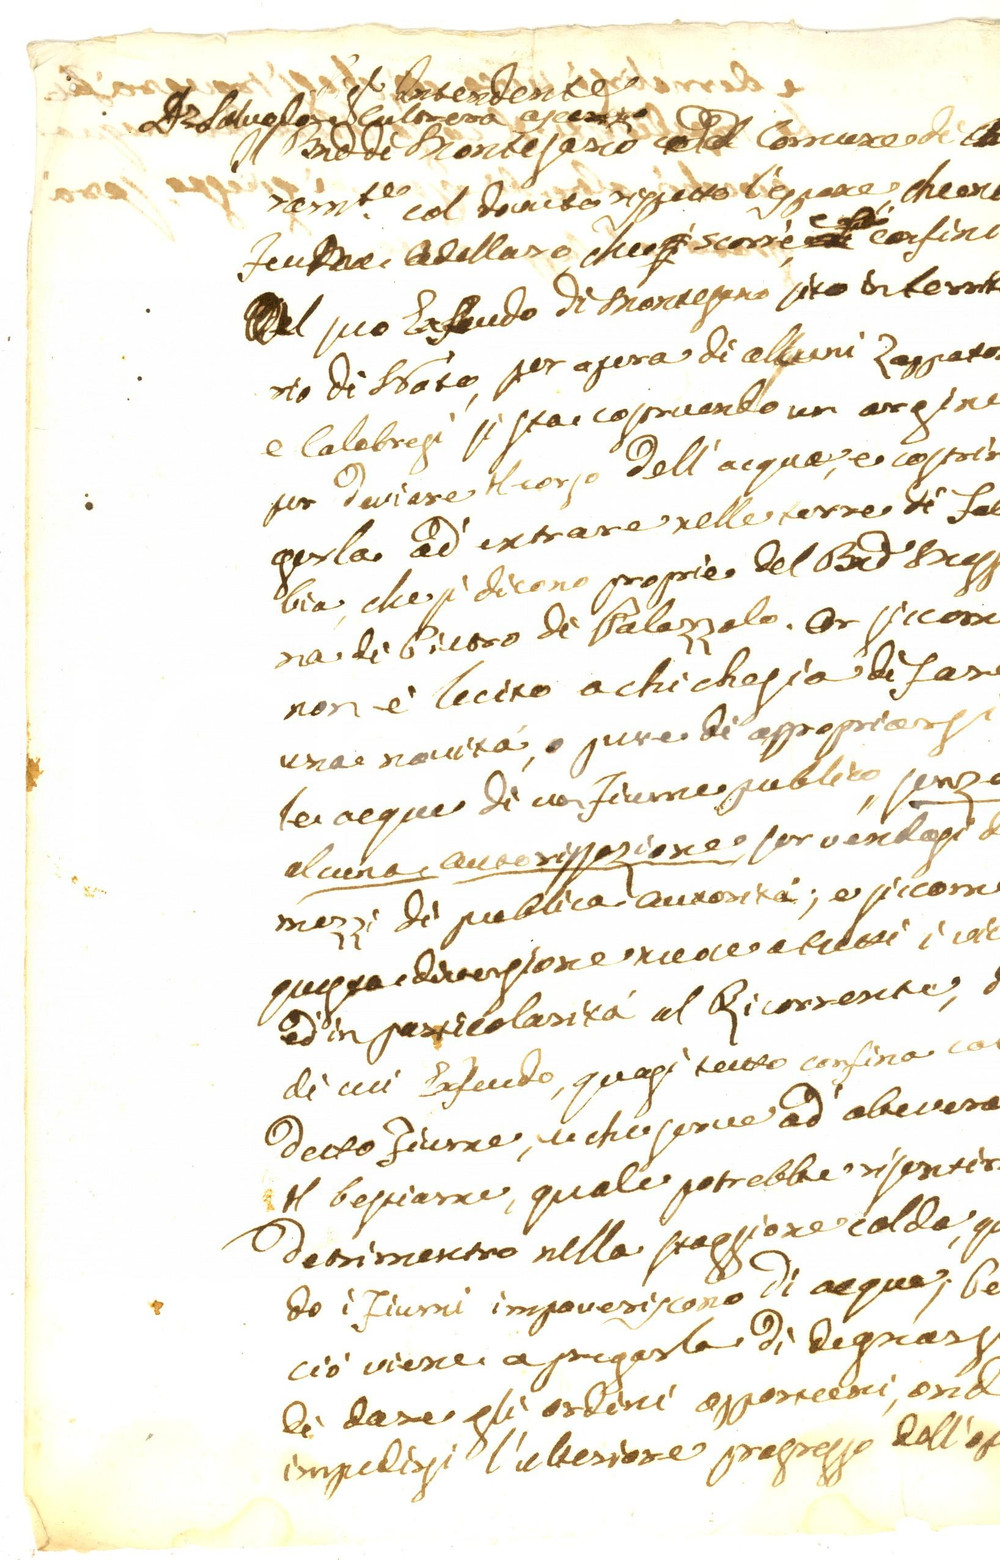 Intendente
Il Bne di Montesano Comune di
ramte col dovuto rispetto l'espone, che
Feudo che scorre confini
Del suo Exfeudo di Montesano sito in territo
rio di Noto, per opera di alcuni Zappato
e Calabresi si sta costruendo un argine
per deviare il corso dell'acqua, e costrin
gerla ad entrare nelle terre di Fal
bia, che si dicono proprie del
na di Pietro di Palazzolo. Or siccom
non è lecito a chichesia di fare
una novità, o pure di appropriarsi
le acque di un fiume publico, senza
alcuna autorizzazione, per vendersi
mezzi di publica autorità; e siccom
questa diversione nuoce a tutti i vic
ed in particolarità al Ricorrente, d
di cui Exfeudo, quasi tutto confina co
detto fiume, che serve ad abevera
il bestiame, quale potrebbe risentir
detrimento nella staggione calda, q
do i fiumi impoveriscono di acqua; Pe
ciò viene a pregarla di degnarsi
di dare gli ordini opportuni, ond
impedirsi l'ulteriore progresso dell'op